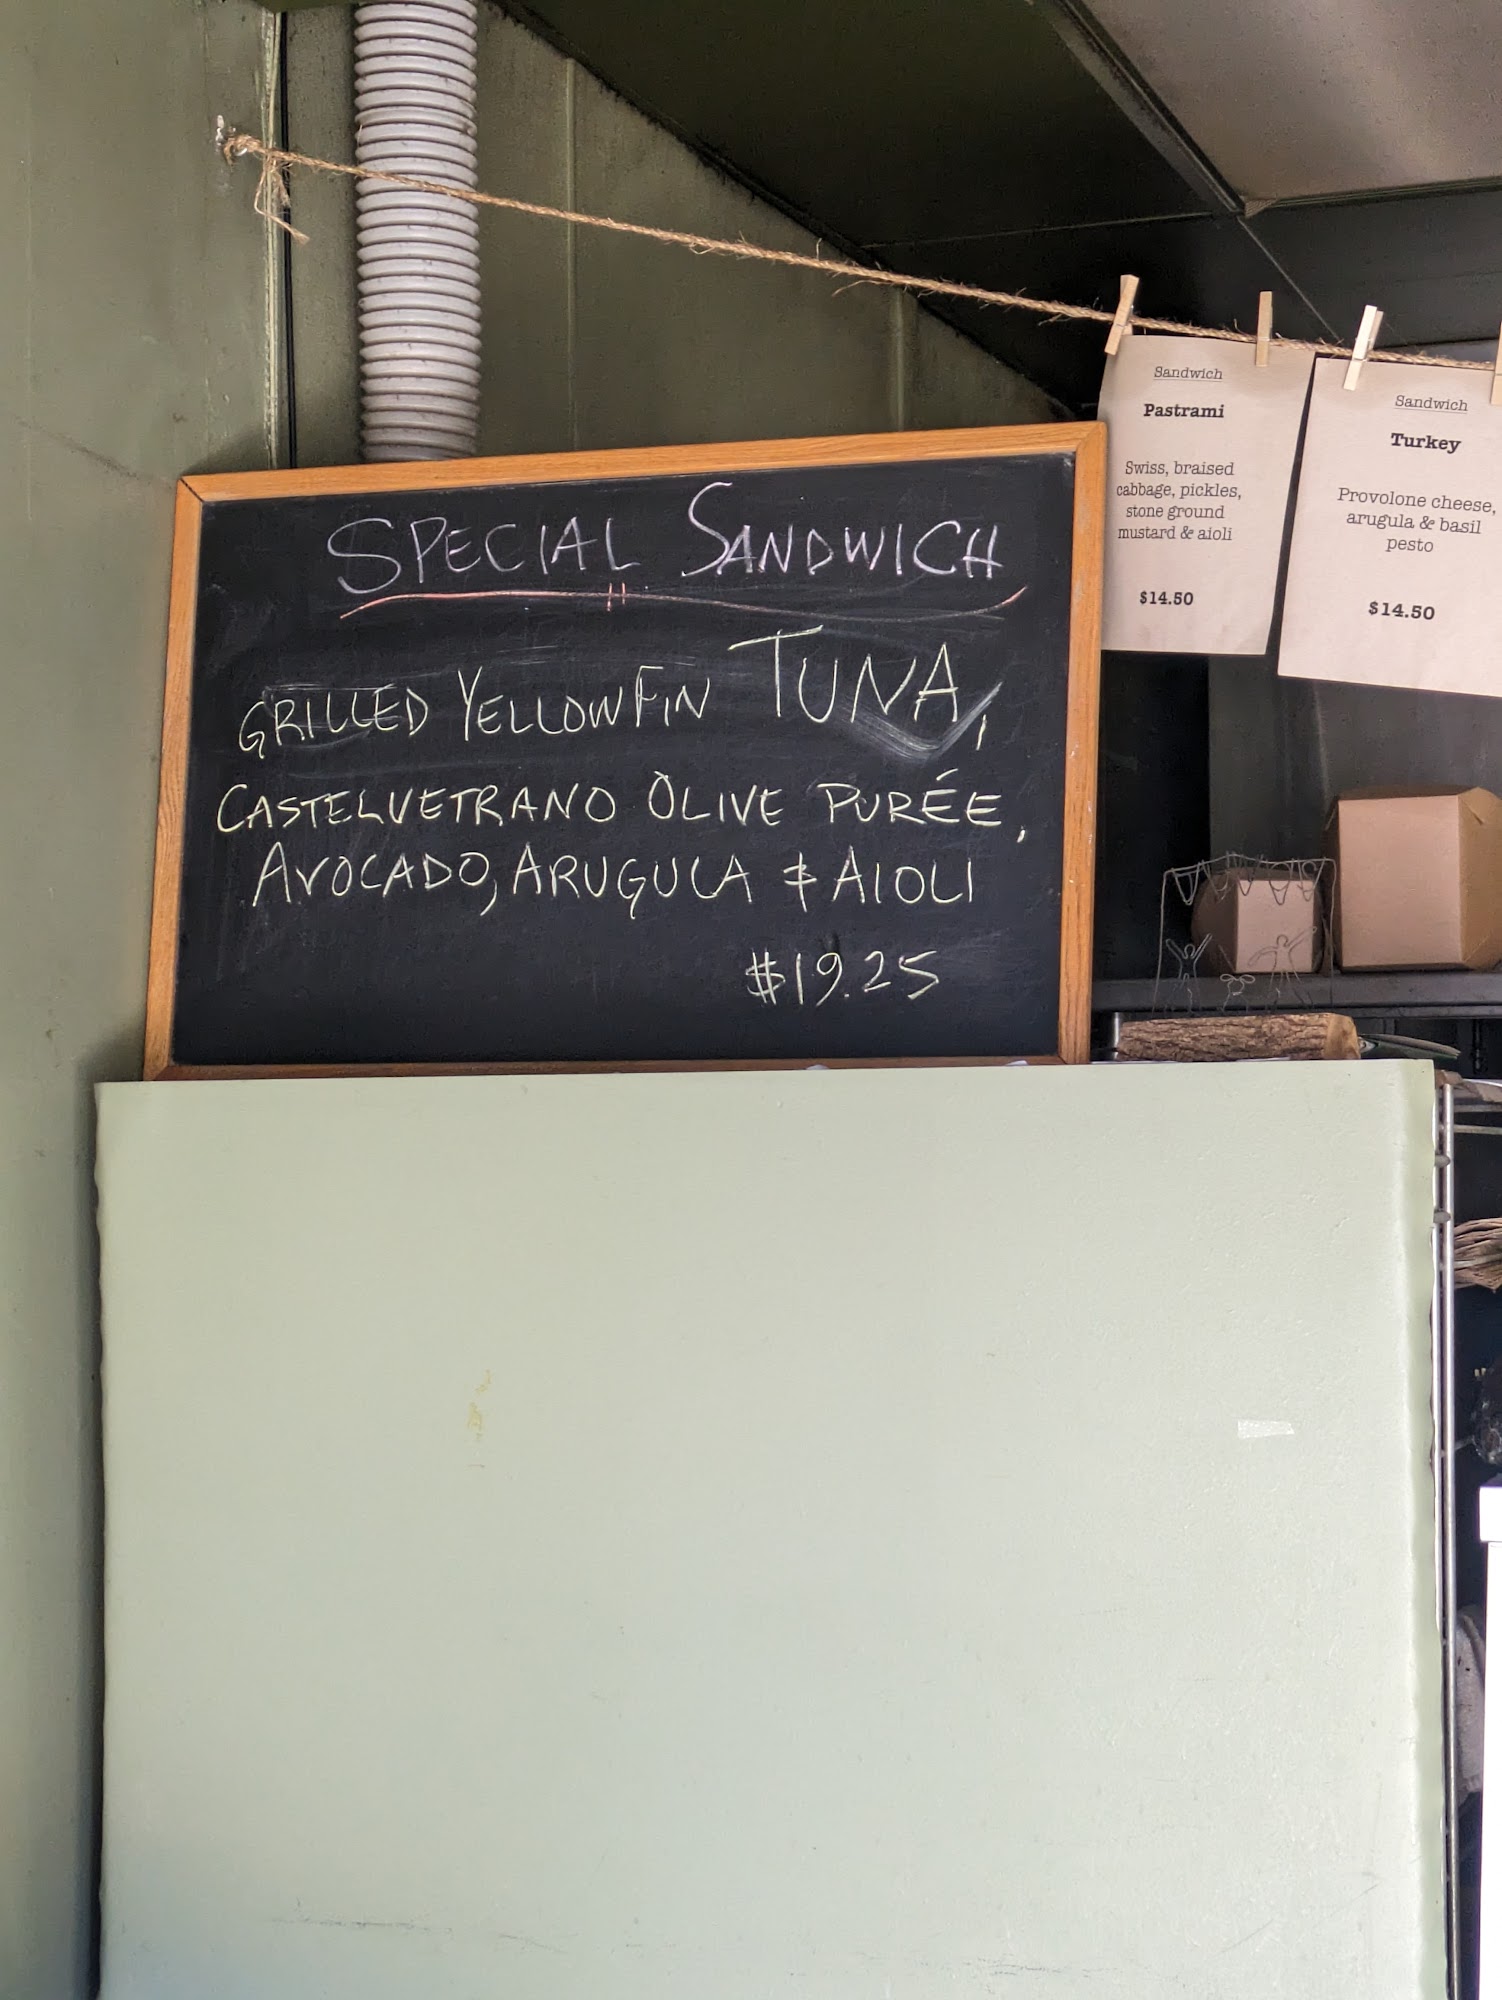 SPECIAL SANDWICH
GRILLED YELLOWFIN TUNA,
CASTELVETRANO OLIVE PURÉE,
AVOCADO, ARUGULA & AIOLI
$19.25
Sandwich
Pastrami
Swiss, braised
cabbage, pickles,
stone ground
mustard & aioli
$14.50
Sandwich
Turkey
Provolone cheese,
arugula & basil
pesto
$14.50